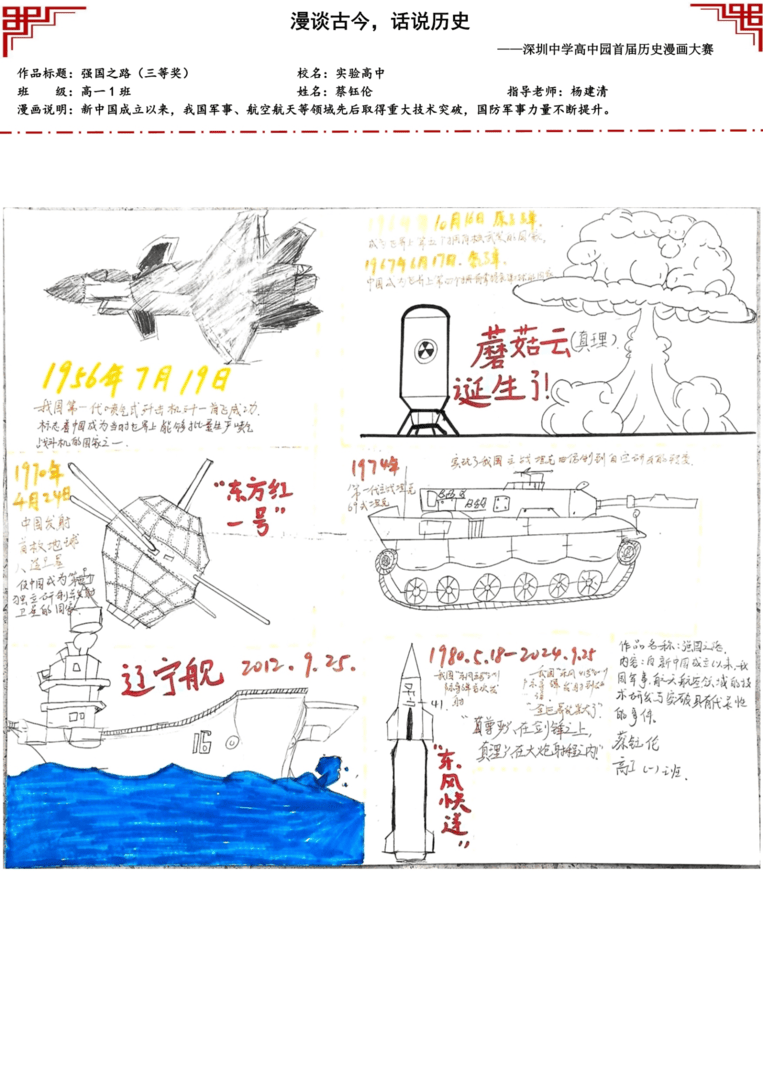 漫谈古今，话说历史
——深圳中学高中园首届历史漫画大赛
作品标题：强国之路（三等奖）
校名：实验高中
班 级：高一1班
姓名：蔡钰伦
指导老师：杨建清
漫画说明：新中国成立以来，我国军事、航空航天等领域先后取得重大技术突破，国防军事力量不断提升。
1956年7月19日
我国第一代喷气式歼击机歼一首飞成功.
标志着中国成为当时世界上能够批量生产喷气
战斗机的国家之一.
10月16日
1967年6月17日.
蘑菇云(真理)
诞生了!
1970年
4月24日
中国发射
首枚地球
人造卫星
使中国成为第
独立研制
卫星的国家.
"东方红
一号"
1974年
第一代主战坦克
69式坦克
辽宁舰 2012.9.25.
16
1980.5.18-2024.9.25
"尊严只在剑锋之上,
真理只在大炮射程之内"
"东风快递"
作品名称:强国之路.
内容:自新中国成立以来,我
国军事、航天航空领域的技
术研发与突破具有代表性
的事件.
蔡钰伦
高一(一)班.